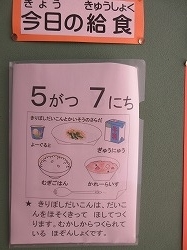 きょう きゅうしょく
今日の給食
5がつ 7にち
きりぼしだいこんとかいそうのさらだ
よーぐると
ぎゅうにゅう
むぎごはん
かれーらいす
★ きりぼしだいこんは、だいこ
んをほそくきって ほしてつく
ります。むかしからつくられて
いる ほぞんしょくです。